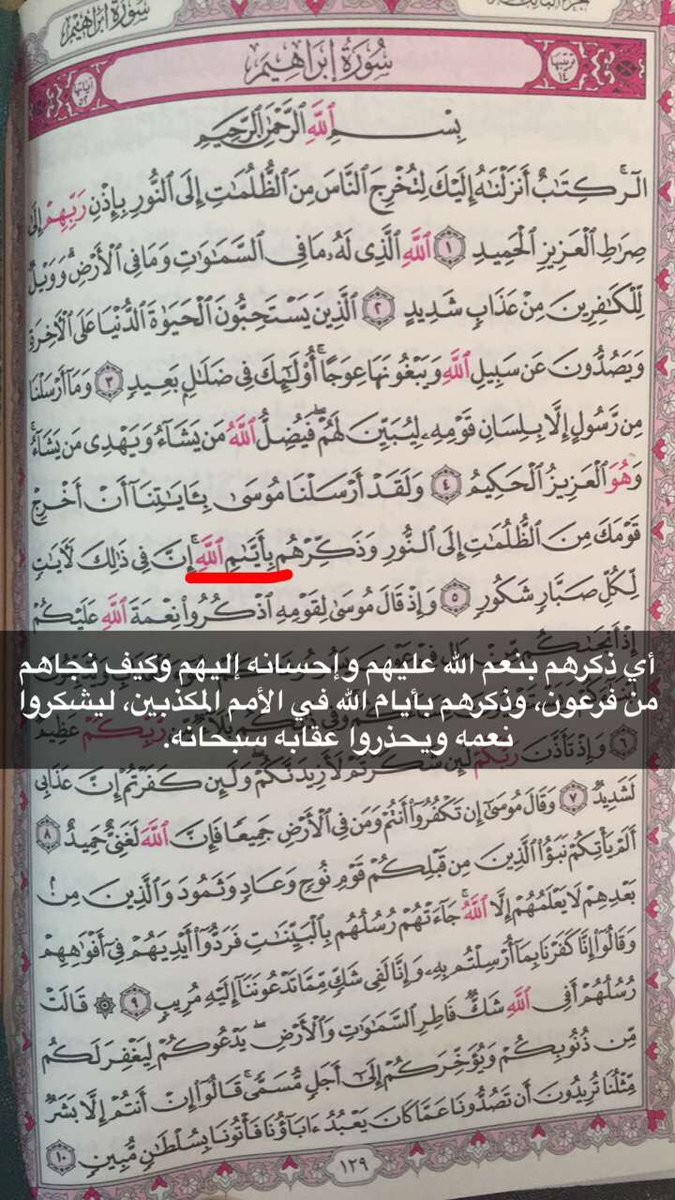 سُورَةُ إِبْرَاهِيمَ
تَرْتِيبُهَا ١٤
سُورَةُ إِبْرَاهِيمَ
آيَاتُهَا ٥٢
بِسْمِ ٱللَّهِ ٱلرَّحْمَٰنِ ٱلرَّحِيمِ
الٓر ۚ كِتَٰبٌ أَنزَلْنَٰهُ إِلَيْكَ لِتُخْرِجَ ٱلنَّاسَ مِنَ ٱلظُّلُمَٰتِ إِلَى ٱلنُّورِ بِإِذْنِ رَبِّهِمْ إِلَىٰ
صِرَٰطِ ٱلْعَزِيزِ ٱلْحَمِيدِ ١ ٱللَّهِ ٱلَّذِى لَهُۥ مَا فِى ٱلسَّمَٰوَٰتِ وَمَا فِى ٱلْأَرْضِ ۗ وَوَيْلٌ
لِّلْكَٰفِرِينَ مِنْ عَذَابٍ شَدِيدٍ ٢ ٱلَّذِينَ يَسْتَحِبُّونَ ٱلْحَيَوٰةَ ٱلدُّنْيَا عَلَى ٱلْأَخِرَةِ
وَيَصُدُّونَ عَن سَبِيلِ ٱللَّهِ وَيَبْغُونَهَا عِوَجًا ۚ أُو۟لَٰٓئِكَ فِى ضَلَٰلٍۭ بَعِيدٍ ٣ وَمَآ أَرْسَلْنَا
مِن رَّسُولٍ إِلَّا بِلِسَانِ قَوْمِهِۦ لِيُبَيِّنَ لَهُمْ ۖ فَيُضِلُّ ٱللَّهُ مَن يَشَآءُ وَيَهْدِى مَن يَشَآءُ ۚ
وَهُوَ ٱلْعَزِيزُ ٱلْحَكِيمُ ٤ وَلَقَدْ أَرْسَلْنَا مُوسَىٰ بِـَٔايَٰتِنَآ أَنْ أَخْرِجْ
قَوْمَكَ مِنَ ٱلظُّلُمَٰتِ إِلَى ٱلنُّورِ وَذَكِّرْهُم بِأَيَّىٰمِ ٱللَّهِ ۚ إِنَّ فِى ذَٰلِكَ لَأٓيَٰتٍ
لِّكُلِّ صَبَّارٍ شَكُورٍ ٥ وَإِذْ قَالَ مُوسَىٰ لِقَوْمِهِ ٱذْكُرُوا۟ نِعْمَةَ ٱللَّهِ عَلَيْكُمْ
إِذْ أَنجَىٰكُم
أي ذكرهم بنعم الله عليهم وإحسانه إليهم وكيف نجاهم
من فرعون، وذكرهم بأيام الله في الأمم المكذبين، ليشكروا
نعمه ويحذروا عقابه سبحانه.
رَّبِّكُمْ عَظِيمٌ
٦ وَإِذْ تَأَذَّنَ رَبُّكُمْ لَئِن شَكَرْتُمْ لَأَزِيدَنَّكُمْ ۖ وَلَئِن كَفَرْتُمْ إِنَّ عَذَابِى
لَشَدِيدٌ ٧ وَقَالَ مُوسَىٰٓ إِن تَكْفُرُوٓا۟ أَنتُمْ وَمَن فِى ٱلْأَرْضِ جَمِيعًا فَإِنَّ ٱللَّهَ لَغَنِىٌّ حَمِيدٌ ٨
أَلَمْ يَأْتِكُمْ نَبَؤُا۟ ٱلَّذِينَ مِن قَبْلِكُمْ قَوْمِ نُوحٍ وَعَادٍ وَثَمُودَ ۛ وَٱلَّذِينَ مِنۢ
بَعْدِهِمْ ۛ لَا يَعْلَمُهُمْ إِلَّا ٱللَّهُ ۚ جَآءَتْهُمْ رُسُلُهُم بِٱلْبَيِّنَٰتِ فَرَدُّوٓا۟ أَيْدِيَهُمْ فِىٓ أَفْوَٰهِهِمْ
وَقَالُوٓا۟ إِنَّا كَفَرْنَا بِمَآ أُرْسِلْتُم بِهِۦ وَإِنَّا لَفِى شَكٍّ مِّمَّا تَدْعُونَنَآ إِلَيْهِ مُرِيبٍ ٩ ۞ قَالَتْ
رُسُلُهُمْ أَفِى ٱللَّهِ شَكٌّ فَاطِرِ ٱلسَّمَٰوَٰتِ وَٱلْأَرْضِ ۖ يَدْعُوكُمْ لِيَغْفِرَ لَكُم
مِّن ذُنُوبِكُمْ وَيُؤَخِّرَكُمْ إِلَىٰٓ أَجَلٍ مُّسَمًّى ۚ قَالُوٓا۟ إِنْ أَنتُمْ إِلَّا بَشَرٌ
مِّثْلُنَا تُرِيدُونَ أَن تَصُدُّونَا عَمَّا كَانَ يَعْبُدُ ءَابَآؤُنَا فَأْتُونَا بِسُلْطَٰنٍ مُّبِينٍ ١٠
١٢٩